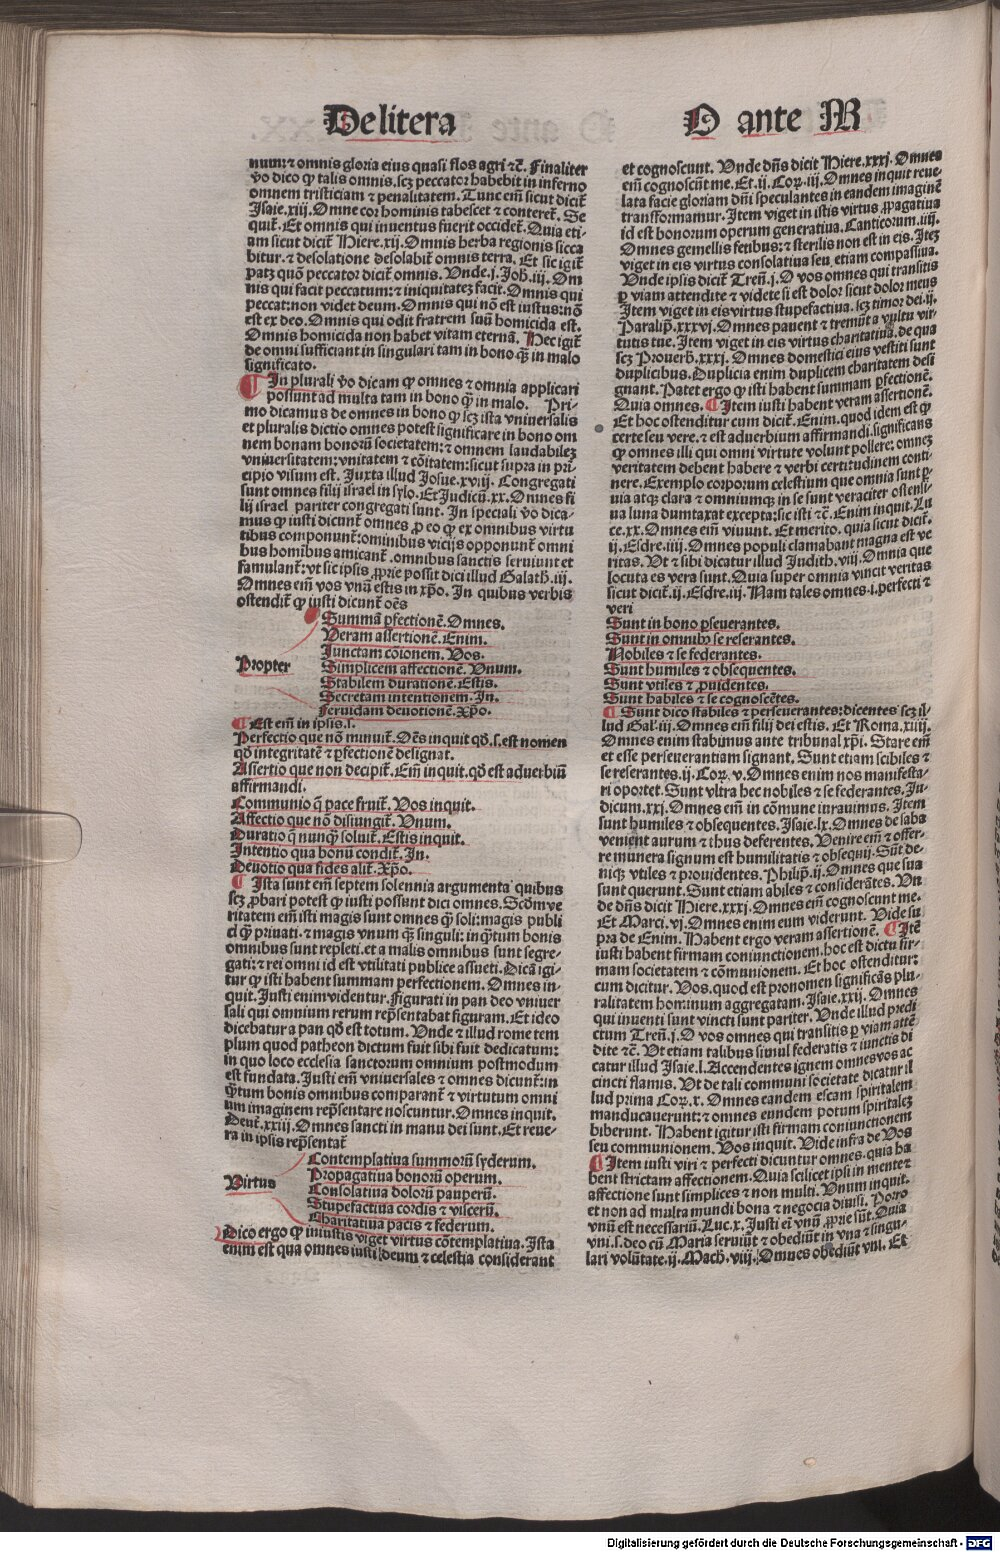 De litera
O ante M
num: ⁊ omnis gloria eius quasi flos agri ⁊c̄. Finaliter
v̄o dico ꝙ talis omnis, scꝫ peccator habebit in inferno
omnem tristiciam ⁊ penalitatem. Tunc em̄ sicut dicit̄
Isaie.xiij. Omne cor hominis tabescet ⁊ conteret̄. Se
quit̄. Et omnis qui inuentus fuerit occidet̄. Quia eti-
am sicut dicit̄ Hiere.xij. Omnis herba regionis sicca
bitur. ⁊ desolatione desolabit̄ omnis terra. Et sic igit̄
patꝫ quō peccator dicit̄ omnis. Unde.j. Joh̄.iij. Om
nis qui facit peccatum: ⁊ iniquitatez facit. Omnis qui
peccat: non videt deum. Omnis qui nō est iustus: nō
est ex deo. Omnis qui odit fratrem suū homicida est.
Omnis homicida non habet vitam eternā. Nec igit̄
de omni sufficiant in singulari tam in bono q̄ꝫ in malo
significato.
¶ In plurali v̄o dicam ꝙ omnes ⁊ omnia applicari
possunt ad multa tam in bono q̄ꝫ in malo. Pri-
mo dicamus de omnes in bono ꝙ scꝫ ista vniuersalis
et pluralis dictio omnes potest significare in bono om
nem bonam bonorū societatem: ⁊ omnem laudabilez
vniuersitatem: vnitatem ⁊ cōitatem: sicut supra in pri
cipio visum est. Juxta illud Josue.xviij. Congregati
sunt omnes filij israel in sylo. Et Judicū.xx. Omnes fi
lij israel pariter congregati sunt. In speciali v̄o dica-
mus ꝙ iusti dicunt̄ omnes ꝓ eo ꝙ ex omnibus virtu
tibus componunt̄: ominibus vicijs opponunt̄ omni
bus hominibus amicant̄. omnibus sanctis seruiunt et
famulant̄: vt sic ipsis ꝓprie possit dici illud Galath̄.iij.
Omnes em̄ vos vnū estis in xp̄o. In quibus verbis
ostendit̄ ꝙ iusti dicunt̄ oēs
Propter
Summā ꝑfectionē. Omnes.
Veram assertionē. Enim.
Junctam cōionem. Vos.
Simplicem affectionē. Unum.
Stabilem durationē. Estis.
Secretam intentionem. In.
Feruidam deuotionē. Xp̄o.
¶ Est em̄ in ipsis.s.
Perfectio que nō minuit̄. Om̄s inquit qd̄.s. est nomen
qd̄ integritatē ⁊ ꝑfectionē designat.
Assertio que non decipit̄. Em̄ inquit. qd̄ est aduerbiū
affirmandi.
Communio q̄ pace fruit̄. Vos inquit.
Affectio que nō disiungit̄. Unum.
Duratio q̄ nunqꝫ soluit̄. Estis inquit.
Intentio qua bonū condit̄. In.
Deuotio qua fides alit̄. Xp̄o.
¶ Ista sunt em̄ septem solennia argumenta quibus
scꝫ ꝓbari potest ꝙ iusti possunt dici omnes. Scd̄m ve
ritatem em̄ isti magis sunt omnes q̄ꝫ soli: magis publi
ci q̄ꝫ priuati. ⁊ magis vnum q̄ꝫ singuli: inq̄ꝫtum bonis
omnibus sunt repleti. et a malis omnibus sunt segre-
gati: ⁊ rei omni id est vtilitati publice assueti. Dicā igi-
tur ꝙ isti habent summam perfectionem. Omnes in-
quit. Justi enim videntur. figurati in pan deo vniuer
sali qui omnium rerum rep̄sentabat figuram. Et ideo
dicebatur a pan qd̄ est totum. Unde ⁊ illud rome tem
plum quod patheon dictum fuit sibi fuit dedicatum:
in quo loco ecclesia sanctorum omnium postmodum
est fundata. Justi em̄ vniuersales ⁊ omnes dicunt̄: in
q̄ꝫtum bonis omnibus comparant̄ ⁊ virtutum omni
um imaginem rep̄sentare noscuntur. Omnes inquit.
Deut̄.xxiij. Omnes sancti in manu dei sunt. Et reue-
ra in ipsis rep̄sentat̄
Virtus
Contemplatiua summorū syderum.
Propagatiua bonorū operum.
Consolatiua dolorū pauperū.
Stupefactiua cordis ⁊ viscerū.
Charitatiua pacis ⁊ federum.
Dico ergo ꝙ in iustis viget virtus cōtemplatiua. Ista
enim est qua omnes iusti deum ⁊ celestia considerant
et cognoscunt. Unde dn̄s dicit Hiere.xxxj. Omnes
em̄ cognoscūt me. Et.ij. Coꝝ.iij. Omnes inquit reue-
lata facie gloriam dn̄i speculantes in eandem imaginē
transformamur. Item viget in istis virtus ꝓpagatiua
id est bonorum operum generatiua. Canticorum.iiij.
Omnes gemellis fetibus: ⁊ sterilis non est in eis. Itez
viget in eis virtus consolatiua seu etiam compassiua.
Unde ipsis dicit̄ Tren̄.j. O vos omnes qui transitis
ꝑ viam attendite ⁊ videte si est dolor sicut dolor meus
Item viget in eis virtus stupefactiua. scꝫ timor dei.ij.
Paralip̄.xxxvj. Omnes pauent ⁊ tremūt a vultu vir-
tutis tue. Item viget in eis virtus charitatiua. de qua
scꝫ Prouerb̄.xxxj. Omnes domestici eius vestiti sunt
duplicibus. Duplicia enim duplicem charitatem desi
gnant. Patet ergo ꝙ isti habent summam ꝑfectionē.
Quia omnes. ¶ Item iusti habent veram assertionē.
Et hoc ostenditur cum dicit̄. Enim. quod idem est ꝙ
certe seu vere. ⁊ est aduerbium affirmandi. significans
ꝙ omnes illi qui omni virtute volunt pollere: omnez
veritatem debent habere ⁊ verbi certitudinem conti-
nere. Exemplo corporum celestium que omnia sunt ꝑ-
uia atqꝫ clara ⁊ omniumqꝫ in se sunt veraciter ostensi-
ua luna dumtaxat excepta: sic isti ⁊c̄. Enim inquit. Lu
ce.xx. Omnes em̄ viuunt. Et merito. quia sicut dicit̄.
ij. Esdre.iiij. Omnes populi clamabant magna est ve
ritas. Ut ⁊ sibi dicatur illud Judith.viij. Omnia que
locuta es vera sunt. Quia super omnia vincit veritas
sicut dicit̄.ij. Esdre.iij. Nam tales omnes.i. perfecti ⁊
veri
Sunt in bono ꝑseuerantes.
Sunt in omnibꝰ se reserantes.
Nobiles ⁊ se federantes.
Sunt humiles ⁊ obsequentes.
Sunt vtiles ⁊ ꝓuidentes.
Sunt habiles ⁊ se cognoscētes.
¶ Sunt dico stabiles ⁊ perseuerantes: dicentes scꝫ il-
lud Gal̄.iij. Omnes em̄ filij dei estis. Et Roma.xiiij.
Omnes enim stabimus ante tribunal xp̄i. Stare em̄
et esse perseuerantiam signant. Sunt etiam scibiles ⁊
se reserantes.ij. Coꝝ.v. Omnes enim nos manifesta-
ri oportet. Sunt vltra hec nobiles ⁊ se federantes. Ju-
dicum.xxj. Omnes em̄ in cōmune iurauimus. Item
sunt humiles ⁊ obsequentes. Isaie.lx. Omnes de saba
venient aurum ⁊ thus deferentes. Venire em̄ ⁊ offer-
re munera signum est humilitatis ⁊ obsequij. Sūt de-
niqꝫ vtiles ⁊ prouidentes. Philip̄.ij. Omnes que sua
sunt querunt. Sunt etiam abiles ⁊ considerātes. Un
de dn̄s dicit Hiere.xxxj. Omnes em̄ cognoscunt me.
Et Marci.vj. Omnes enim eum viderunt. Vide su
pra de Enim. Habent ergo veram assertionē. ¶ Itē
iusti habent firmam coniunctionem. hoc est dictu fir-
mam societatem ⁊ cōmunionem. Et hoc ostenditur:
cum dicitur. Vos. quod est pronomen significās plu-
ralitatem hominum aggregatam. Isaie.xxij. Omnes
qui inuenti sunt vincti sunt pariter. Unde illud predi
ctum Tren̄.j. O vos omnes qui transitis ꝑ viam attē
dite ⁊c̄. Ut etiam talibus simul federatis ⁊ iunctis di
catur illud Isaie.l. Accendentes ignem omnes vos ac
cincti flamis. Ut de tali communi societate dicatur il
lud prima Coꝝ.x. Omnes eandem escam spiritalem
manducauerunt: ⁊ omnes eundem potum spiritalez
biberunt. Habent igitur isti firmam coniunctionem
seu communionem. Vos inquit. Vide infra de Vos
¶ Item iusti viri ⁊ perfecti dicuntur omnes. quia ha
bent strictam affectionem. Quia scilicet ipsi in mente ⁊
affectione sunt simplices ⁊ non multi. Unum inquit.
et non ad multa mundi bona ⁊ negocia diuisi. Porro
vnū est necessariū. Luc.x. Justi em̄ vnū ꝓprie sūt. Quia
vni.s. deo cū Maria seruiūt ⁊ obediūt in vna ⁊ singu-
lari volūtate.ij. Mach̄.viij. Omnes obediūt vni. Et
Digitalisierung gefördert durch die Deutsche Forschungsgemeinschaft - DFG